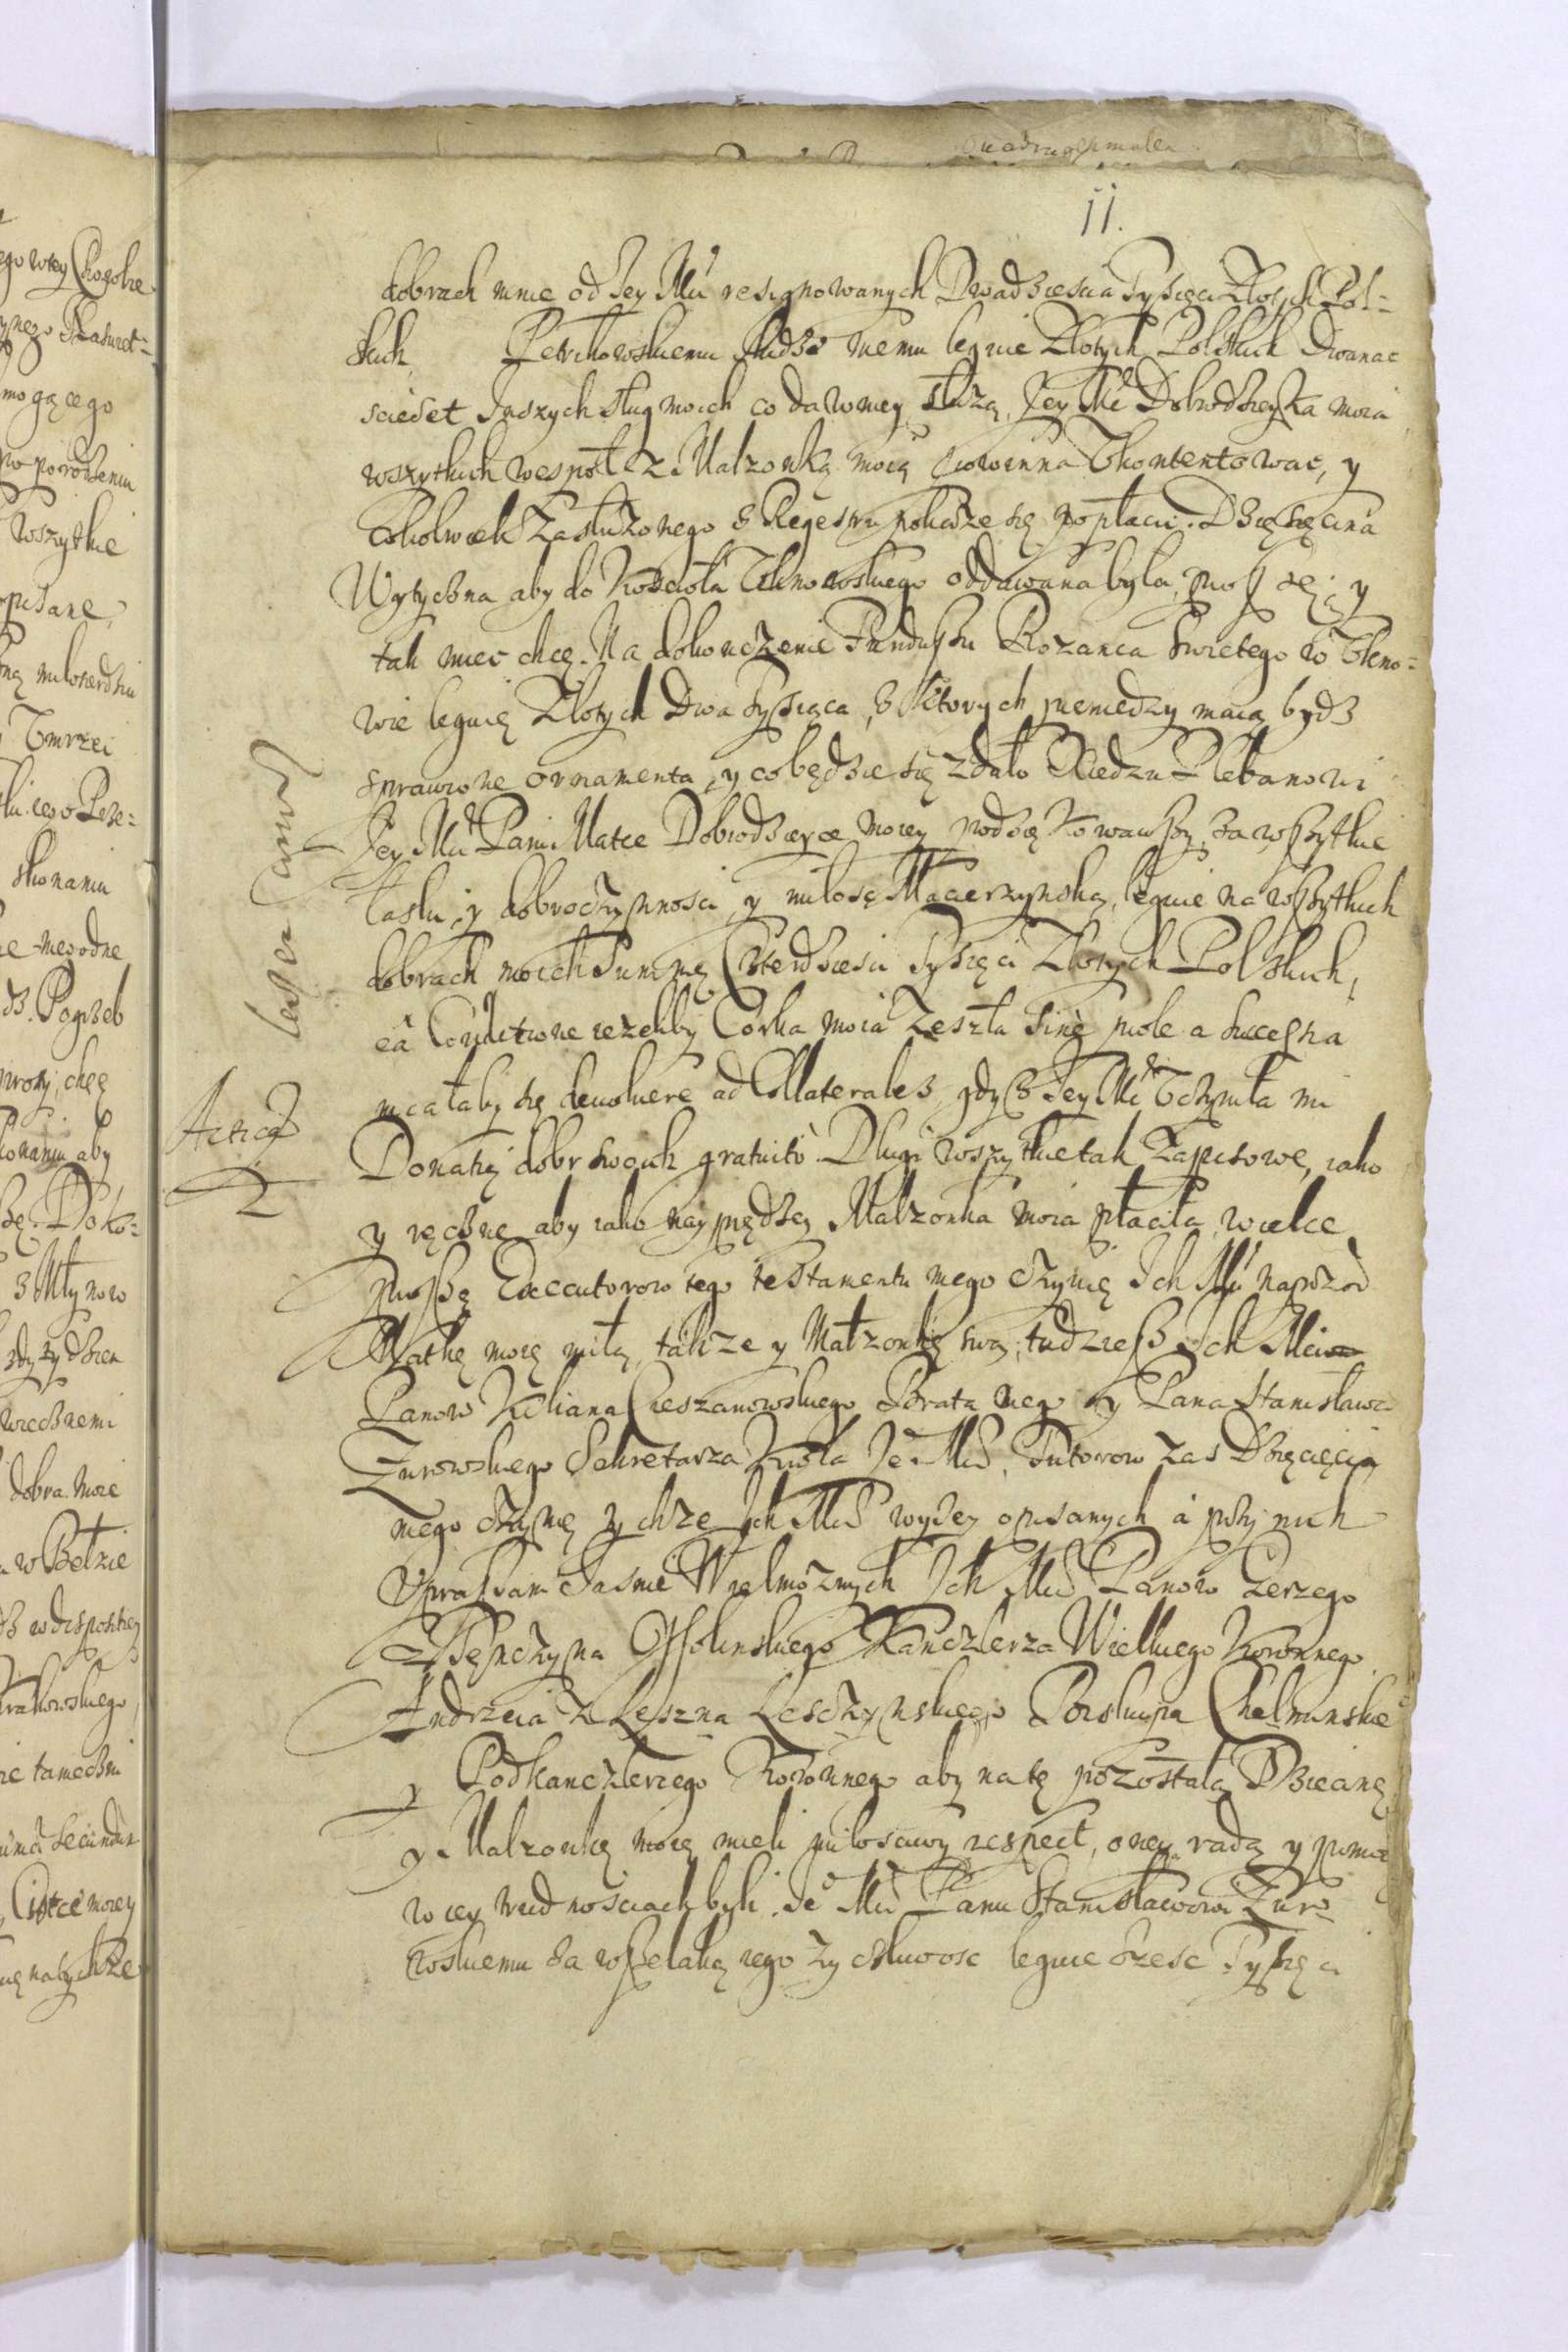 11.
dobrach mnie od Jey Mći resignowanych Dwadziescia Tysięci Złotych Pol=
skich. Petrikowskiemu słudze memu leguie Złotych Polskich Dwanas
scieset Inszych sług moich co dawniey słuzą, Jey Mć Dobrodzieyka moia
wszytkich wespoł z Małzonką moią powinna Ukontentowac, y
Cokolwiek zasłuzonego z Regestru pokaze się popłacic. Dziesięcina
Wytyczna aby do Koscioła Uhnowskiego oddawana była, proszę, y
tak miec chcę. Na dokonczenie Funduszu Rozanca Swietego w Uhno=
wie leguię Złotych Dwa Tysiąca, z ktorych pieniedzy maią bydz
sprawione ornamenta, y co będzie się zdało Xiedzu Plebanowi
Jey Mći Pani Matce Dobrodzieyce moiey podziękowawszy za wszytkie
łaski, y dobroczynnosci, y miłosc Macierzynską, leguie na wszytkich
dobrach moich Summę Czterdziesci Tysięci Złotych Polskich,
ea Conditione iezeliby Corka moia zeszła sine prole a successia
miałaby się devolvere ad Collaterales, gdysz Jey Mć Uczyniła mi
Donatią dobr swoich gratuito. Długi wszytkie tak zapisowe, iako
y ręczne aby iako nayprędzey Małzonka moia płaciła, wielce
proszę Executorow tego testamentu mego czynię Ich Mć naprzod
Matkę moię miłą, takze y Małzonkę swą, tudziesz Ich Mći
Panow Kiliana Cieszanowskiego Brata mego y Pana Stanisława
Zurowskiego Sekretarza Krola Je Mći, Tutorow zas Dziecięcia
mego czynię tychze Ich Mći wyzey opisanych a przy nich
Upraszam Jasnie Wielmoznych Ich Mći Panow Jerzego
z Tęnczyna Ossolinskiego Kanclerza Wielkiego Koronnego
Andrzeia z Leszna Lesczynskiego Biskupa Chełminskie
y Podkanclerzego Koronnego aby na tę pozostałą Dziecinę
y Małzonkę moię mieli miłosciwy respect, oney radą y pomocą
w iey trudnosciach byli. Je Mći Panu Stanisławowi Zuro=
wskiemu za wszelaką iego zyczliwosc leguie szesc Tysięci